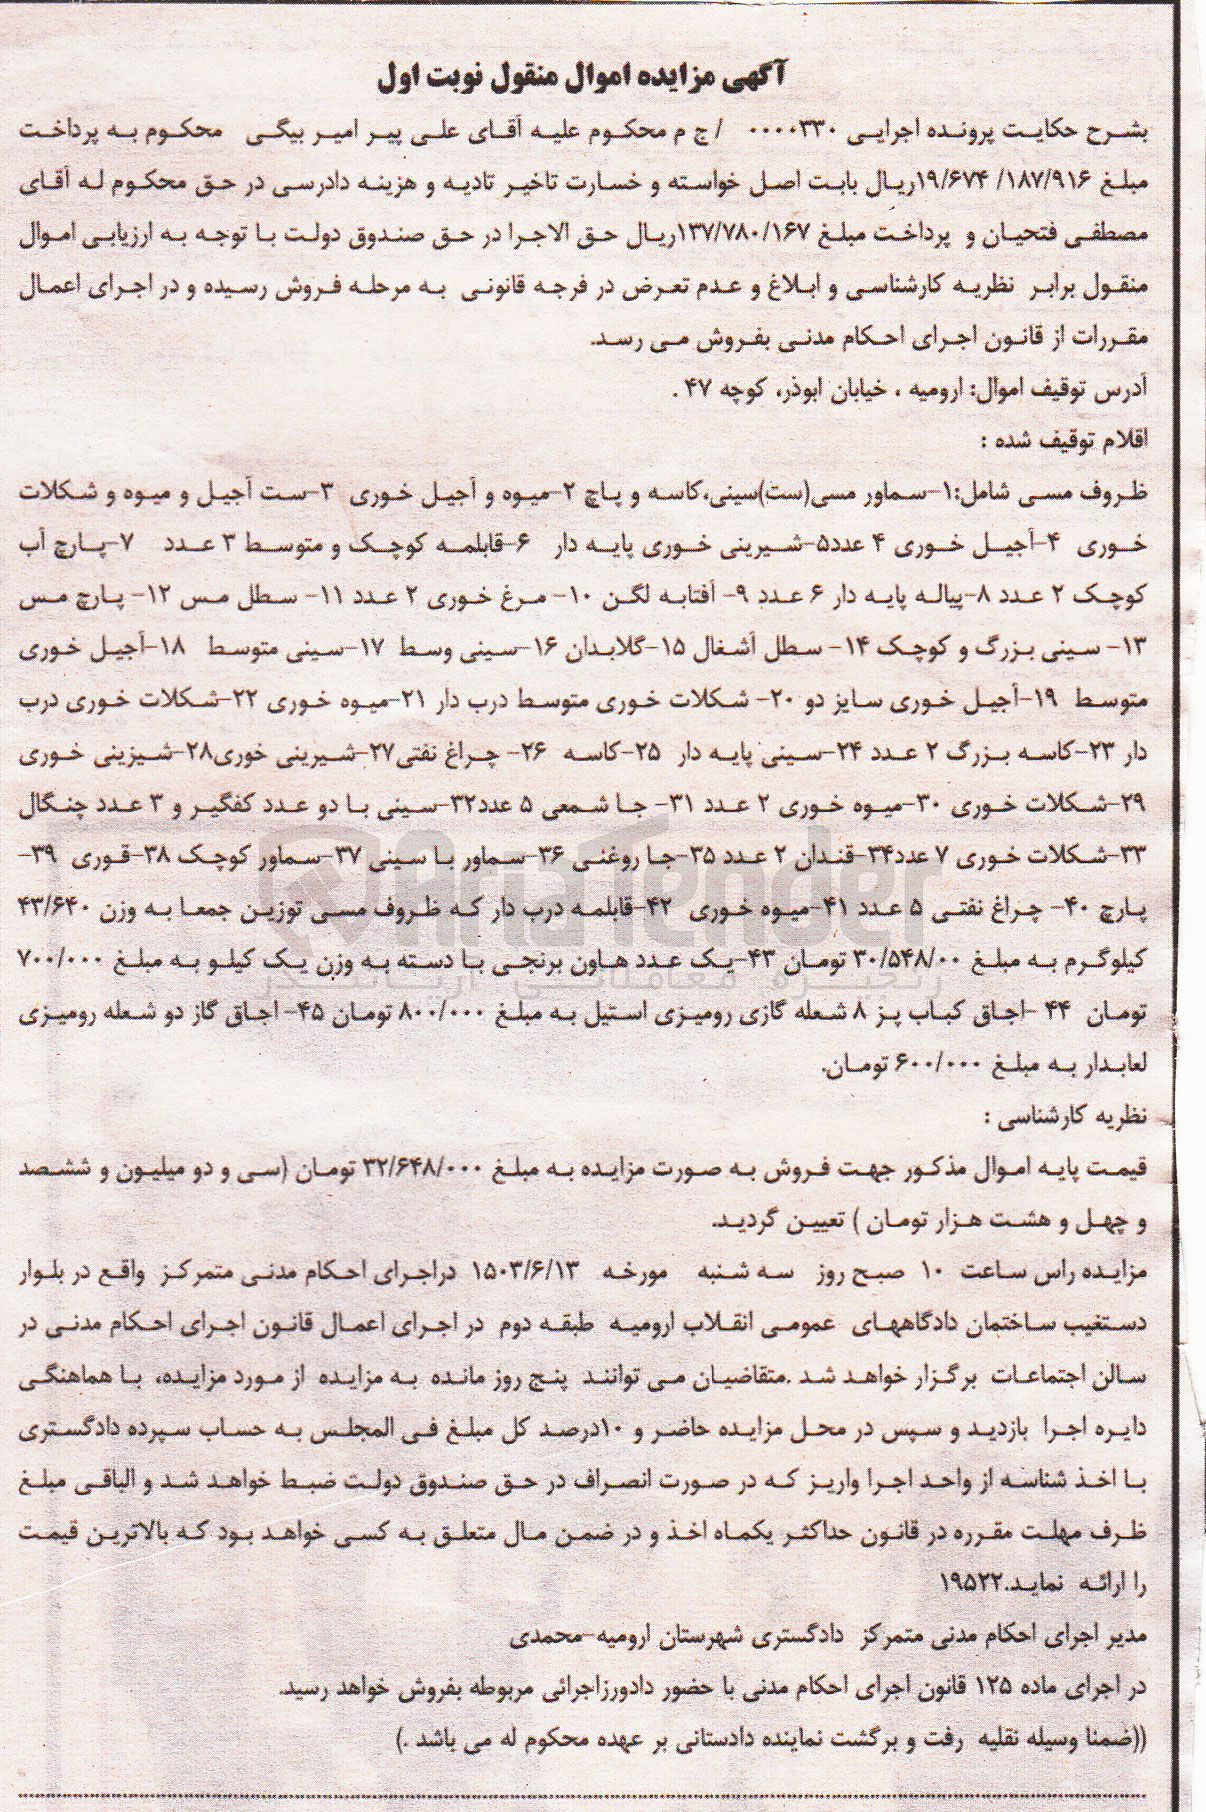 آگهی مزایده اموال منقول نوبت اول
بشرح حکایت پرونده اجرایی ۰۰۰۰۳۳۰ / ج م محکوم علیه آقای علی پیر امیر بیگی محکوم به پرداخت
مبلغ ۱۹/۶۷۴ /۱۸۷/۹۱۶ریال بابت اصل خواسته و خسارت تاخیر تادیه و هزینه دادرسی در حق محکوم له آقای
مصطفی فتحیان و پرداخت مبلغ ۱۳۷/۷۸۰/۱۶۷ریال حق الاجرا در حق صندوق دولت با توجه به ارزیابی اموال
منقول برابر نظریه کارشناسی و ابلاغ و عدم تعرض در فرجه قانونی به مرحله فروش رسیده و در اجرای اعمال
مقررات از قانون اجرای احکام مدنی بفروش می رسد.
آدرس توقیف اموال: ارومیه ، خیابان ابوذر، کوچه ۴۷ .
اقلام توقیف شده :
ظروف مسی شامل:۱-سماور مسی(ست)سینی،کاسه و پاچ ۲-میوه و آجیل خوری ۳-ست آجیل و میوه و شکلات
خوری ۴-آجیل خوری ۴ عدد۵-شیرینی خوری پایه دار ۶-قابلمه کوچک و متوسط ۳ عدد ۷-پارچ آب
کوچک ۲ عدد ۸-پیاله پایه دار ۶ عدد ۹- آفتابه لگن ۱۰- مرغ خوری ۲ عدد ۱۱- سطل مس ۱۲- پارچ مس
۱۳- سینی بزرگ و کوچک ۱۴- سطل آشغال ۱۵-گلابدان ۱۶-سینی وسط ۱۷-سینی متوسط ۱۸-آجیل خوری
متوسط ۱۹-آجیل خوری سایز دو ۲۰- شکلات خوری متوسط درب دار ۲۱-میوه خوری ۲۲-شکلات خوری درب
دار ۲۳-کاسه بزرگ ۲ عدد ۲۴-سینی پایه دار ۲۵-کاسه ۲۶- چراغ نفتی۲۷-شیرینی خوری۲۸-شیزینی خوری
۲۹-شکلات خوری ۳۰-میوه خوری ۲ عدد ۳۱- جا شمعی ۵ عدد۳۲-سینی با دو عدد کفگیر و ۳ عدد چنگال
۳۳-شکلات خوری ۷ عدد۳۴-قندان ۲ عدد ۳۵-جا روغنی ۳۶-سماور با سینی ۳۷-سماور کوچک ۳۸-قوری ۳۹-
پارچ ۴۰- چراغ نفتی ۵ عدد ۴۱-میوه خوری ۴۲-قابلمه درب دار که ظروف مسی توزین جمعا به وزن ۴۳/۶۴۰
کیلوگرم به مبلغ ۳۰/۵۴۸/۰۰ تومان ۴۳-یک عدد هاون برنجی با دسته به وزن یک کیلو به مبلغ ۷۰۰/۰۰۰
تومان ۴۴ -اجاق کباب پز ۸ شعله گازی رومیزی استیل به مبلغ ۸۰۰/۰۰۰ تومان ۴۵- اجاق گاز دو شعله رومیزی
لعابدار به مبلغ ۶۰۰/۰۰۰ تومان.
نظریه کارشناسی :
قیمت پایه اموال مذکور جهت فروش به صورت مزایده به مبلغ ۳۲/۶۴۸/۰۰۰ تومان (سی و دو میلیون و ششصد
و چهل و هشت هزار تومان ) تعیین گردید.
مزایده راس ساعت ۱۰ صبح روز سه شنبه مورخه ۱۵۰۳/۶/۱۳ دراجرای احکام مدنی متمرکز واقع در بلوار
دستغیب ساختمان دادگاههای عمومی انقلاب ارومیه طبقه دوم در اجرای اعمال قانون اجرای احکام مدنی در
سالن اجتماعات برگزار خواهد شد .متقاضیان می توانند پنج روز مانده به مزایده از مورد مزایده، با هماهنگی
دایره اجرا بازدید و سپس در محل مزایده حاضر و ۱۰درصد کل مبلغ فی المجلس به حساب سپرده دادگستری
با اخذ شناسه از واحد اجرا واریز که در صورت انصراف در حق صندوق دولت ضبط خواهد شد و الباقی مبلغ
ظرف مهلت مقرره در قانون حداکثر یکماه اخذ و در ضمن مال متعلق به کسی خواهد بود که بالاترین قیمت
را ارائه نماید.۱۹۵۲۲
مدیر اجرای احکام مدنی متمرکز دادگستری شهرستان ارومیه-محمدی
در اجرای ماده ۱۲۵ قانون اجرای احکام مدنی با حضور دادورزاجرائی مربوطه بفروش خواهد رسید.
((ضمنا وسیله نقلیه رفت و برگشت نماینده دادستانی بر عهده محکوم له می باشد .)
AriaTender
زنجیره معاملاتی آریاتندر